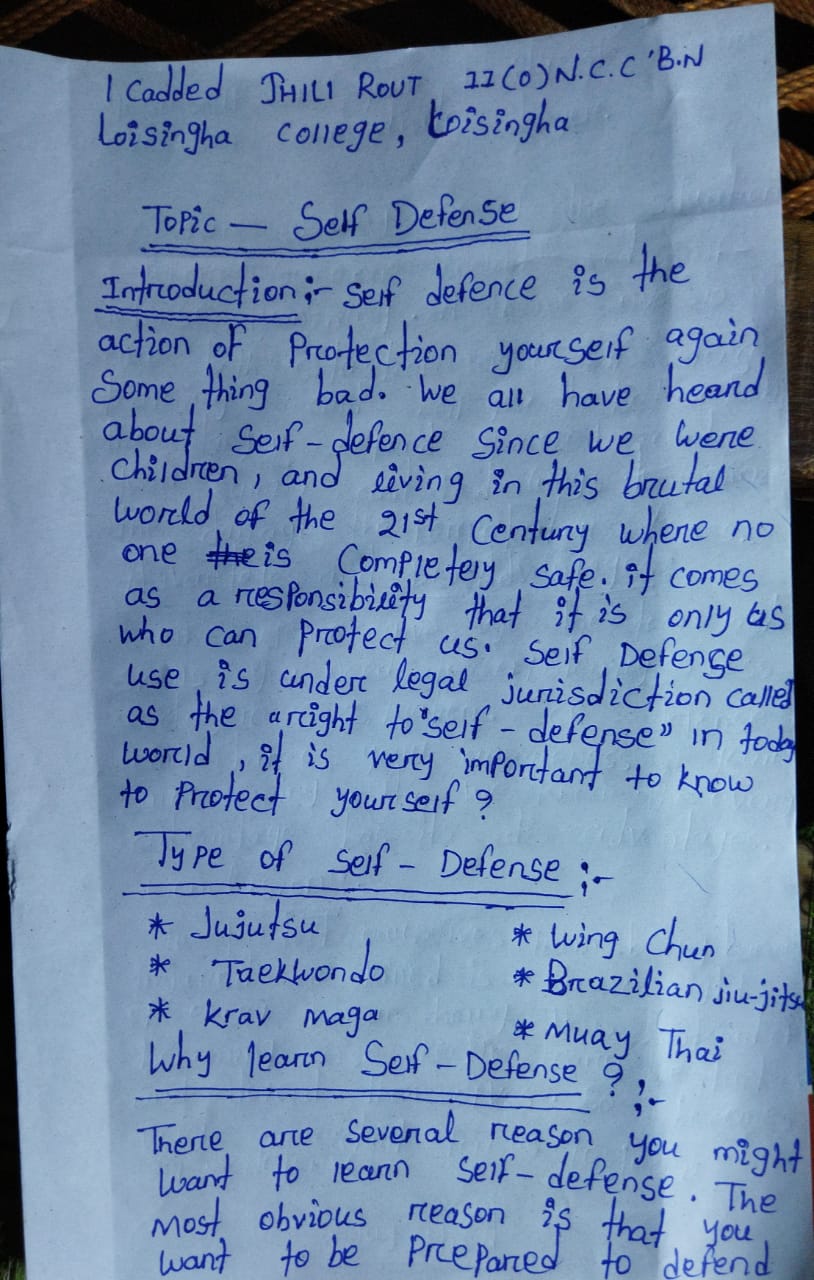 I Cadded JHILI ROUT 11(O) N.C.C 'B.N
Loisingha College, Loisingha
Topic — Self Defense
Introduction :- Self defence is the
action of Protection yourself again
Some thing bad. We all have heard
about Self-defence Since we were
children, and living in this brutal
world of the 21st Century where no
one the is Completely safe. it comes
as a responsibility that it is only us
who can Protect us. Self Defense
use is under legal jurisdiction called
as the aright to "self-defense" in today
world, it is very important to know
to Protect yourself ?
Type of Self-Defense :-
* Jujutsu * Wing Chun
* Taekwondo * Brazilian jiu-jitsu
* Krav maga * Muay Thai
Why learn Self-Defense ? :-
There are Several reason you might
want to learn self-defense. The
most obvious reason is that you
want to be Prepared to defend